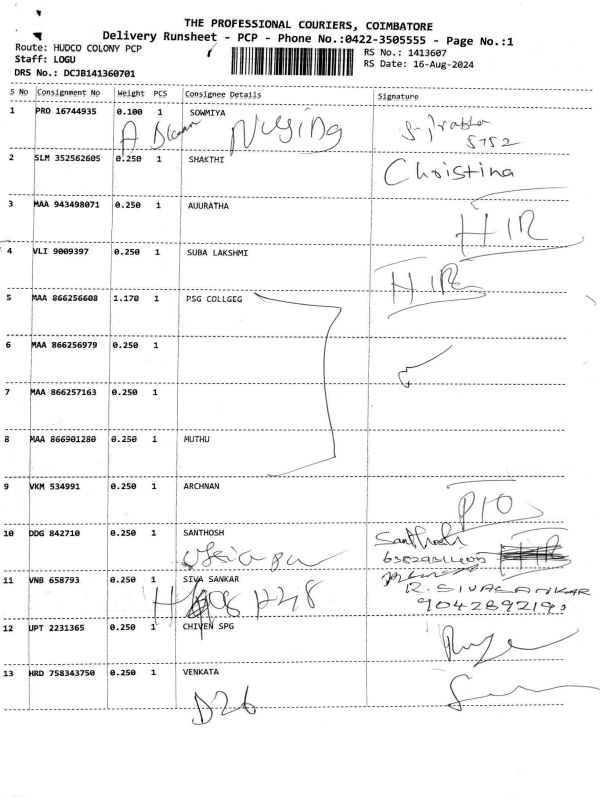 THE PROFESSIONAL COURIERS, COIMBATORE
Delivery Runsheet - PCP - Phone No.:0422-3505555 - Page No.:1
Route: HUDCO COLONY PCP
Staff: LOGU
DRS No.: DCJB141360701
RS No.: 1413607
RS Date: 16-Aug-2024
S No Consignment No Weight PCS Consignee Details Signature
1 PRO 16744935 0.100 1 SOWMIYA
5752
2 SLM 352562605 0.250 1 SHAKTHI Christina
3 MAA 943498071 0.250 1 AUURATHA
HIR
4 VLI 9009397 0.250 1 SUBA LAKSHMI
HIR
5 MAA 866256608 1.170 1 PSG COLLGEG
6 MAA 866256979 0.250 1
7 MAA 866257163 0.250 1
8 MAA 866901280 0.250 1 MUTHU
9 VKM 534991 0.250 1 ARCHNAN
P10
10 DDG 842710 0.250 1 SANTHOSH Santhosh
11 VNB 658793 0.250 1 SIVA SANKAR R. SIVASANKAR
12 UPT 2231365 0.250 1 CHIVEN SPG
13 HRD 758343750 0.250 1 VENKATA
D26